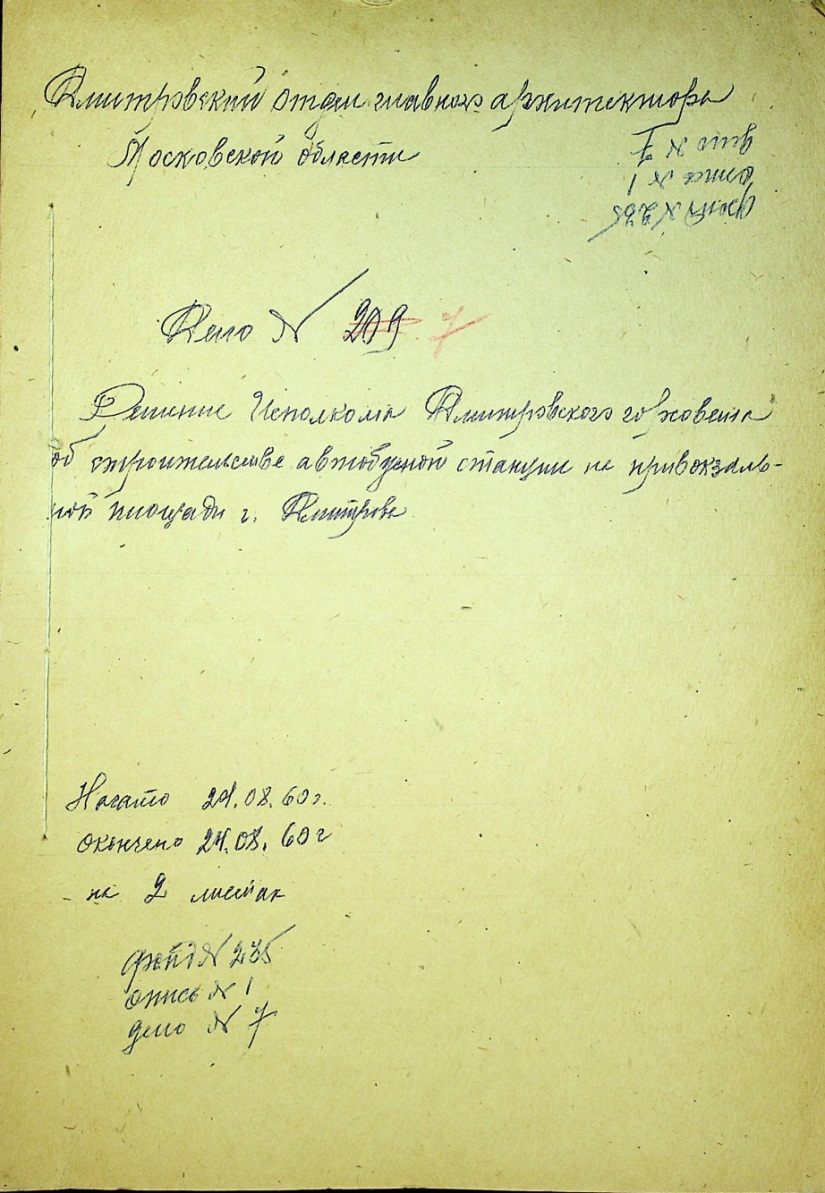 Дмитровский отдел главного архитектора
Московской области
фонд № 235
опись № 1
дело № 7
Дело № 209 7
Решение Исполкома Дмитровского горсовета
об строительстве автобусной станции на привокзаль-
ной площади г. Дмитрова
Начато 24.08.60г.
окончено 24.08.60г
на 2 листах
фонд № 235
опись № 1
дело № 7